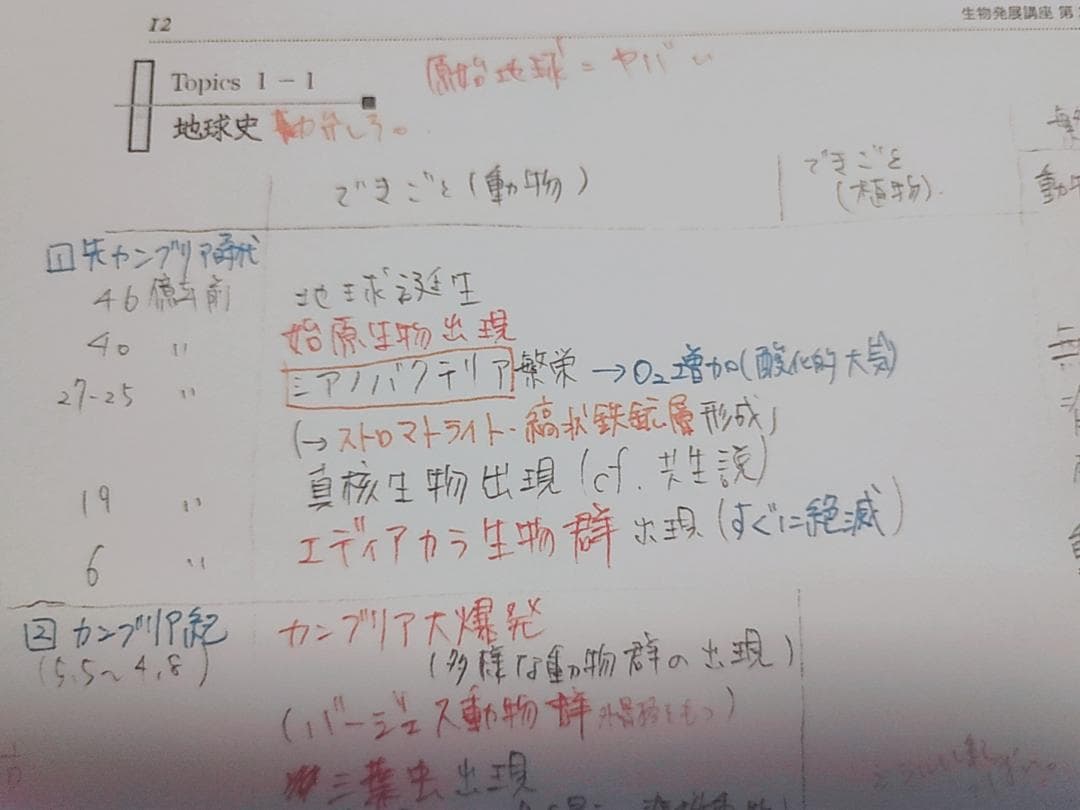 12
生物発展講座 第
Topics 1-1
原始地球 = ヤバい
地球史
できごと(動物)
できごと
(植物)
1 先カンブリア時代
46億年前 地球誕生
40 〃 始原生物出現
27-25 〃 シアノバクテリア繁栄 → O₂増加(酸化的大気)
(→ストロマトライト・縞状鉄鉱層形成)
19 〃 真核生物出現(cf. 共生説)
6 〃 エディアカラ生物群 出現(すぐに絶滅)
2 カンブリア紀 カンブリア大爆発
(5.5~4.8) (多様な動物群の出現)
(バージェス動物群 外骨格をもつ)
三葉虫出現